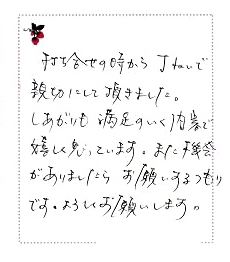 打ち合せの時から丁ねいで
親切にして頂きました。
しあがりも満足のいく内容で
嬉しく思っています。また機会
がありましたらお願いするつもり
です。よろしくお願いします。